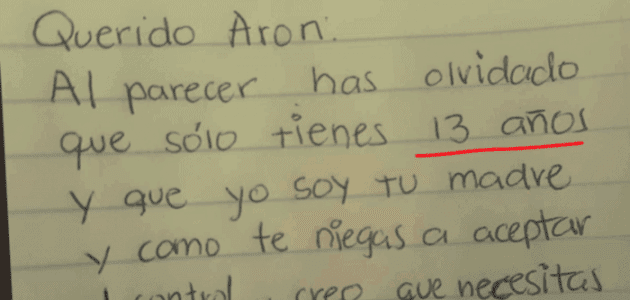 Querido Aron:
Al parecer has olvidado
que sólo tienes 13 años
y que yo soy tu madre
y como te niegas a aceptar
control, creo que necesitas